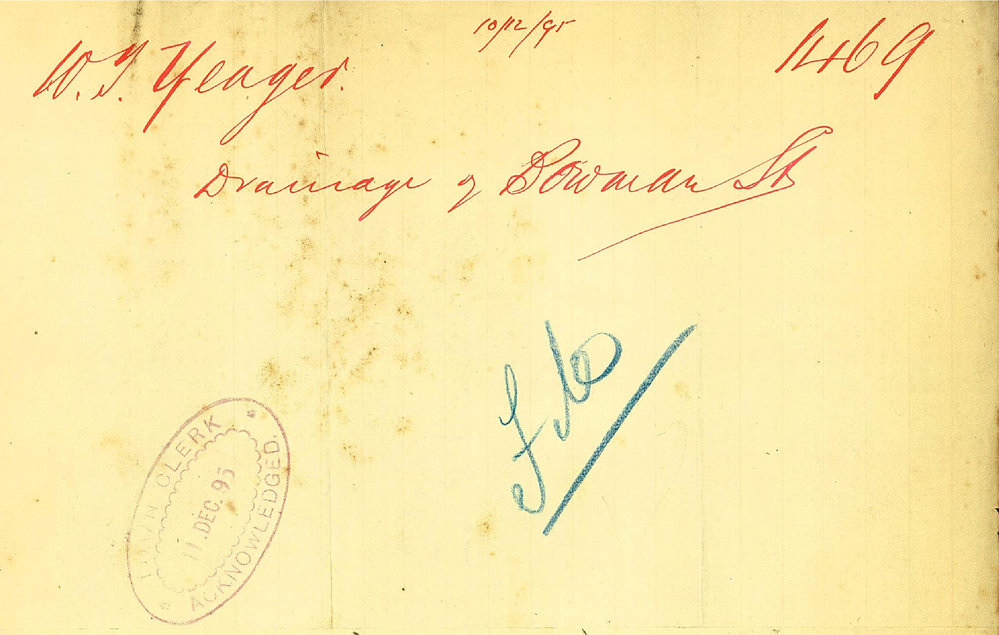 10/12/95
W.J. Yeager.
1469
Drainage of Bowman St
File
TOWN CLERK
11 DEC. 95
ACKNOWLEDGED.